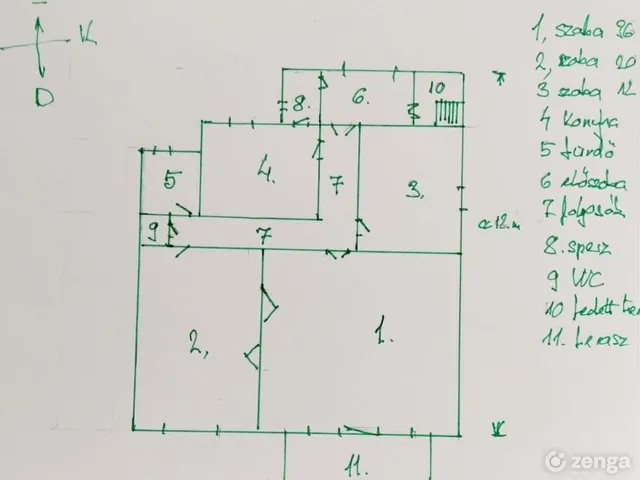 K
D
1, szoba 36
2, szoba 20
3 szoba 12
4 konyha
5 fürdő
6 előszoba
7 folyosók
8. spesz
9 WC
10 fedett
11. terasz
8.
6.
10
5
4.
7
3.
9
7
ca 12 m
2,
1.
11.
zenga